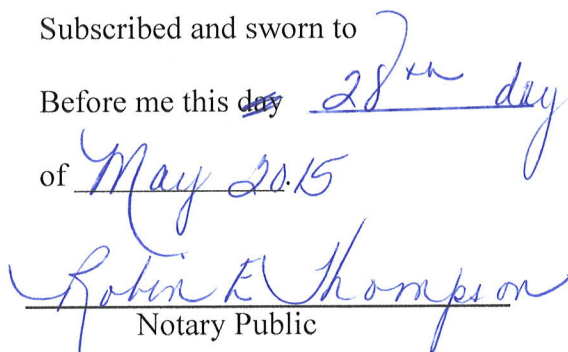 Subscribed and sworn to
Before me this day 28th day
of May 2015
Robin E Thompson
Notary Public